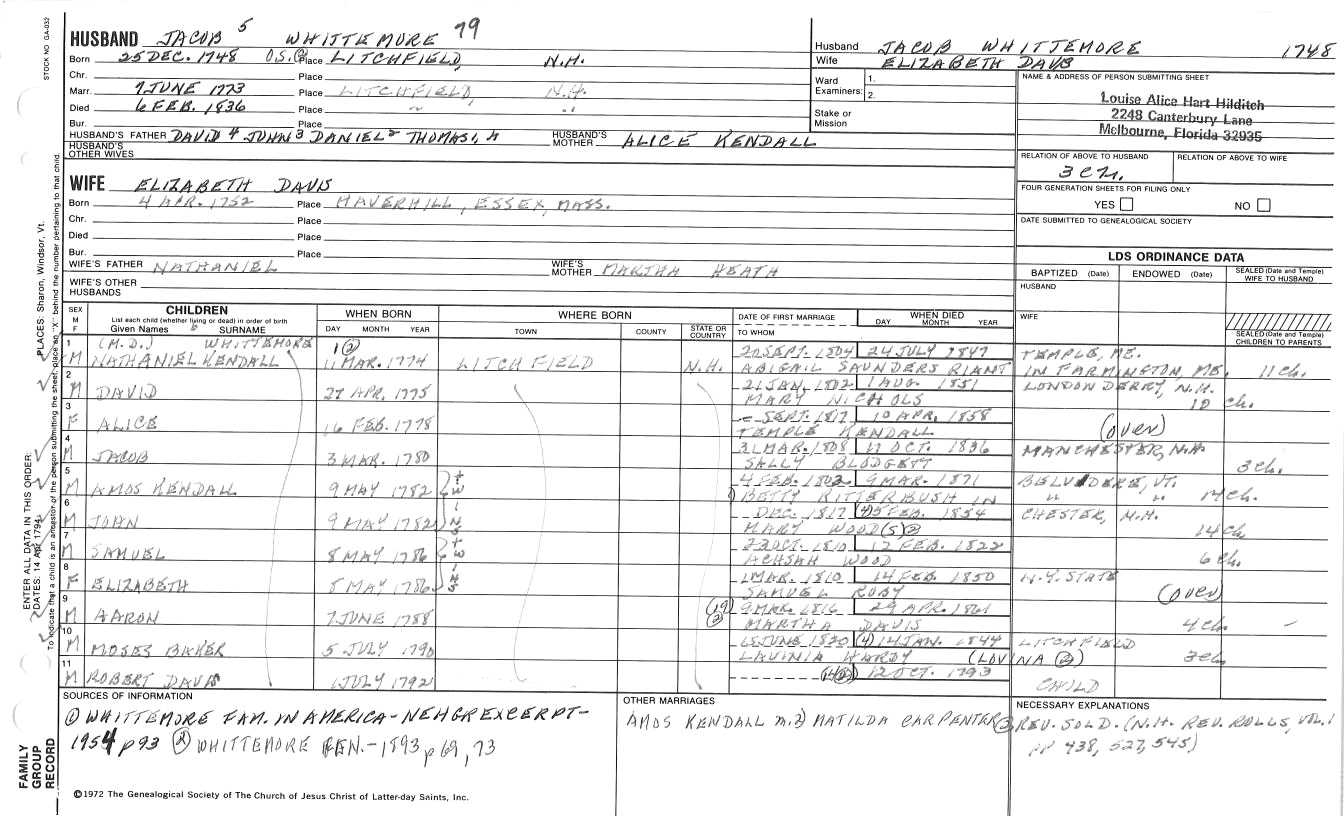 STOCK NO GA-032
HUSBAND JACOB 5 WHITTEMORE 79
Born 25 DEC. 1748 O.S. Place LITCHFIELD, N.H.
Chr. Place
Marr. 7 JUNE 1773 Place LITCHFIELD, N.H.
Died 6 FEB. 1836 Place ~ "
Bur. Place
HUSBAND'S FATHER DAVID 4 JOHN 3 DANIEL 2 THOMAS 1 HUSBAND'S MOTHER ALICE KENDALL
HUSBAND'S OTHER WIVES
WIFE ELIZABETH DAVIS
Born 4 APR. 1752 Place HAVERHILL, ESSEX, MASS.
Chr. Place
Died Place
Bur. Place
WIFE'S FATHER NATHANIEL WIFE'S MOTHER MARTHA HEATH
WIFE'S OTHER HUSBANDS
Husband JACOB WHITTEMORE 1748
Wife ELIZABETH DAVIS
Ward Examiners: 1.
2.
Stake or Mission
NAME & ADDRESS OF PERSON SUBMITTING SHEET
Louise Alice Hart Hilditch
2248 Canterbury Lane
Melbourne, Florida 32935
RELATION OF ABOVE TO HUSBAND RELATION OF ABOVE TO WIFE
FOUR GENERATION SHEETS FOR FILING ONLY
YES NO
DATE SUBMITTED TO GENEALOGICAL SOCIETY
LDS ORDINANCE DATA
BAPTIZED (Date) ENDOWED (Date) SEALED (Date and Temple) WIFE TO HUSBAND
HUSBAND
WIFE
SEALED (Date and Temple) CHILDREN TO PARENTS
SEX M F
CHILDREN
List each child (whether living or dead) in order of birth
Given Names SURNAME
WHEN BORN
DAY MONTH YEAR
WHERE BORN
TOWN COUNTY STATE OR COUNTRY
DATE OF FIRST MARRIAGE
TO WHOM
WHEN DIED
DAY MONTH YEAR
1 (M.D.) WHITTEMORE 1 (2) 20 SEPT. 1804 24 JULY 1847 TEMPLE, ME.
M NATHANIEL KENDALL 11 MAR. 1774 LITCHFIELD N.H. ABIGAIL SAUNDERS RIANT IN FARMINGTON, ME. 11 ch.
2 21 JAN. 1802 1 AUG. 1851 LONDONDERRY, N.H.
M DAVID 27 APR. 1775 MARY NICHOLS 10 ch.
3 - SEPT. 1817 10 APR. 1858
F ALICE 16 FEB. 1778 TEMPLE KENDALL (over)
4 31 MAR. 1808 11 OCT. 1836 MANCHESTER, N.H.
M JACOB 3 MAR. 1780 SALLY BLODGETT 3 ch.
5 4 FEB. 1802 9 MAR. 1871 BELVIDERE, VT.
M AMOS KENDALL 9 MAY 1782 TWINS 1) BETTY RITTERBUSH IN " " 14 ch.
6 DEC. 1817 (4) 5 FEB. 1854 CHESTER, N.H.
M JOHN 9 MAY 1782 MARY WOOD(S) (2) 14 ch
7 23 OCT. 1810 12 FEB. 1822
M SAMUEL 8 MAY 1786 TWINS ACHSAH WOOD 6 ch.
8 1 MAR. 1810 14 FEB. 1850 N.Y. STATE
F ELIZABETH 8 MAY 1786 SAMUEL ROBY (over)
9 (19) (2) 9 MAR. 1816 29 APR. 1861
M AARON 7 JUNE 1788 MARTHA DAVIS 4 ch. -
10 15 JUNE 1820 (4) 14 JAN. 1844 LITCHFIELD
M MOSES BAKER 5 JULY 1790 LAVINIA HARDY (LOVINA (2)) 3 ch
11 12 OCT. 1793
M ROBERT DAVIS 1 JULY 1792 CHILD
SOURCES OF INFORMATION
(1) WHITTEMORE FAM. IN AMERICA-NEHGR EXCERPT-
1954 p 93 (2) WHITTEMORE GEN.-1893 p 69, 73
OTHER MARRIAGES
AMOS KENDALL m. 2) MATILDA CARPENTER
NECESSARY EXPLANATIONS
(3) REV. SOLD. (N.H. REV. ROLLS, VOL. 1
pp 438, 527, 545)
©1972 The Genealogical Society of The Church of Jesus Christ of Latter-day Saints, Inc.
FAMILY GROUP RECORD
ENTER ALL DATA IN THIS ORDER:
DATES: 14 Apr 1794
PLACES: Sharon, Windsor, Vt.
To indicate that a child is an ancestor of the person submitting the sheet, place an "X" behind the number pertaining to that child.